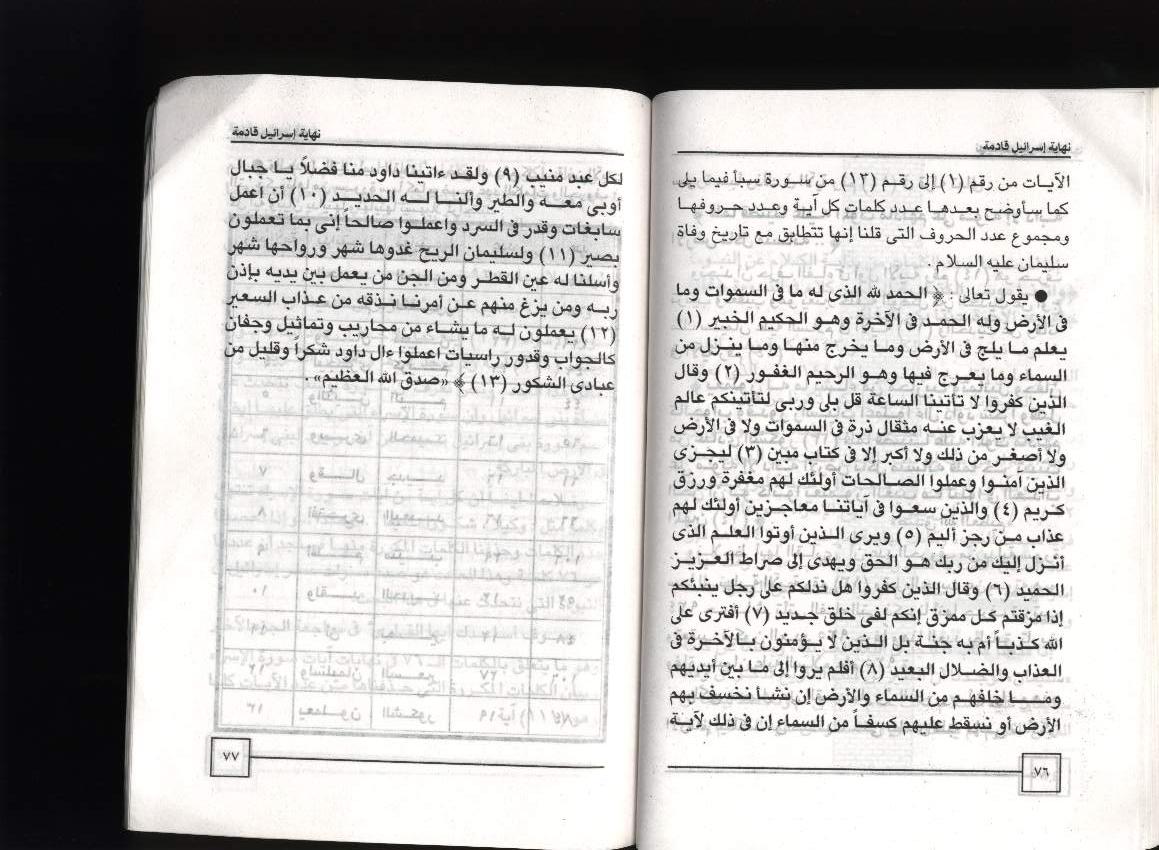 نهاية إسرائيل قادمة
الآيات من رقم (١) إلى رقم (١٣) من سورة سبأ فيما يلى
كما سأوضح بعدها عدد كلمات كل آية وعدد حروفها
ومجموع عدد الحروف التى قلنا إنها تتطابق مع تاريخ وفاة
سليمان عليه السلام .
● يقول تعالى : ﴿ الحمد لله الذى له ما فى السموات وما
فى الأرض وله الحمد فى الآخرة وهو الحكيم الخبير (١)
يعلم ما يلج فى الأرض وما يخرج منها وما ينزل من
السماء وما يعرج فيها وهو الرحيم الغفور (٢) وقال
الذين كفروا لا تأتينا الساعة قل بلى وربى لتأتينكم عالم
الغيب لا يعزب عنه مثقال ذرة فى السموات ولا فى الأرض
ولا أصغر من ذلك ولا أكبر إلا فى كتاب مبين (٣) ليجزى
الذين آمنوا وعملوا الصالحات أولئك لهم مغفرة ورزق
كريم (٤) والذين سعوا فى آياتنا معاجزين أولئك لهم
عذاب من رجز أليم (٥) ويرى الذين أوتوا العلم الذى
أنزل إليك من ربك هو الحق ويهدى إلى صراط العزيز
الحميد (٦) وقال الذين كفروا هل ندلكم على رجل ينبئكم
إذا مزقتم كل ممزق إنكم لفى خلق جديد (٧) أفترى على
الله كذباً أم به جنة بل الذين لا يؤمنون بالآخرة فى
العذاب والضلال البعيد (٨) أفلم يروا إلى ما بين أيديهم
وما خلفهم من السماء والأرض إن نشأ نخسف بهم
الأرض أو نسقط عليهم كسفاً من السماء إن فى ذلك لآية
٧٦
نهاية إسرائيل قادمة
لكل عبد منيب (٩) ولقد ءاتينا داود منا فضلاً يا جبال
أوبى معه والطير وألنا له الحديد (١٠) أن اعمل
سابغات وقدر فى السرد واعملوا صالحاً إنى بما تعملون
بصير (١١) ولسليمان الريح غدوها شهر ورواحها شهر
وأسلنا له عين القطر ومن الجن من يعمل بين يديه بإذن
ربه ومن يزغ منهم عن أمرنا نذقه من عذاب السعير
(١٢) يعملون له ما يشاء من محاريب وتماثيل وجفان
كالجواب وقدور راسيات اعملوا ءال داود شكراً وقليل من
عبادى الشكور (١٣) ﴾ «صدق الله العظيم» .
٧٧